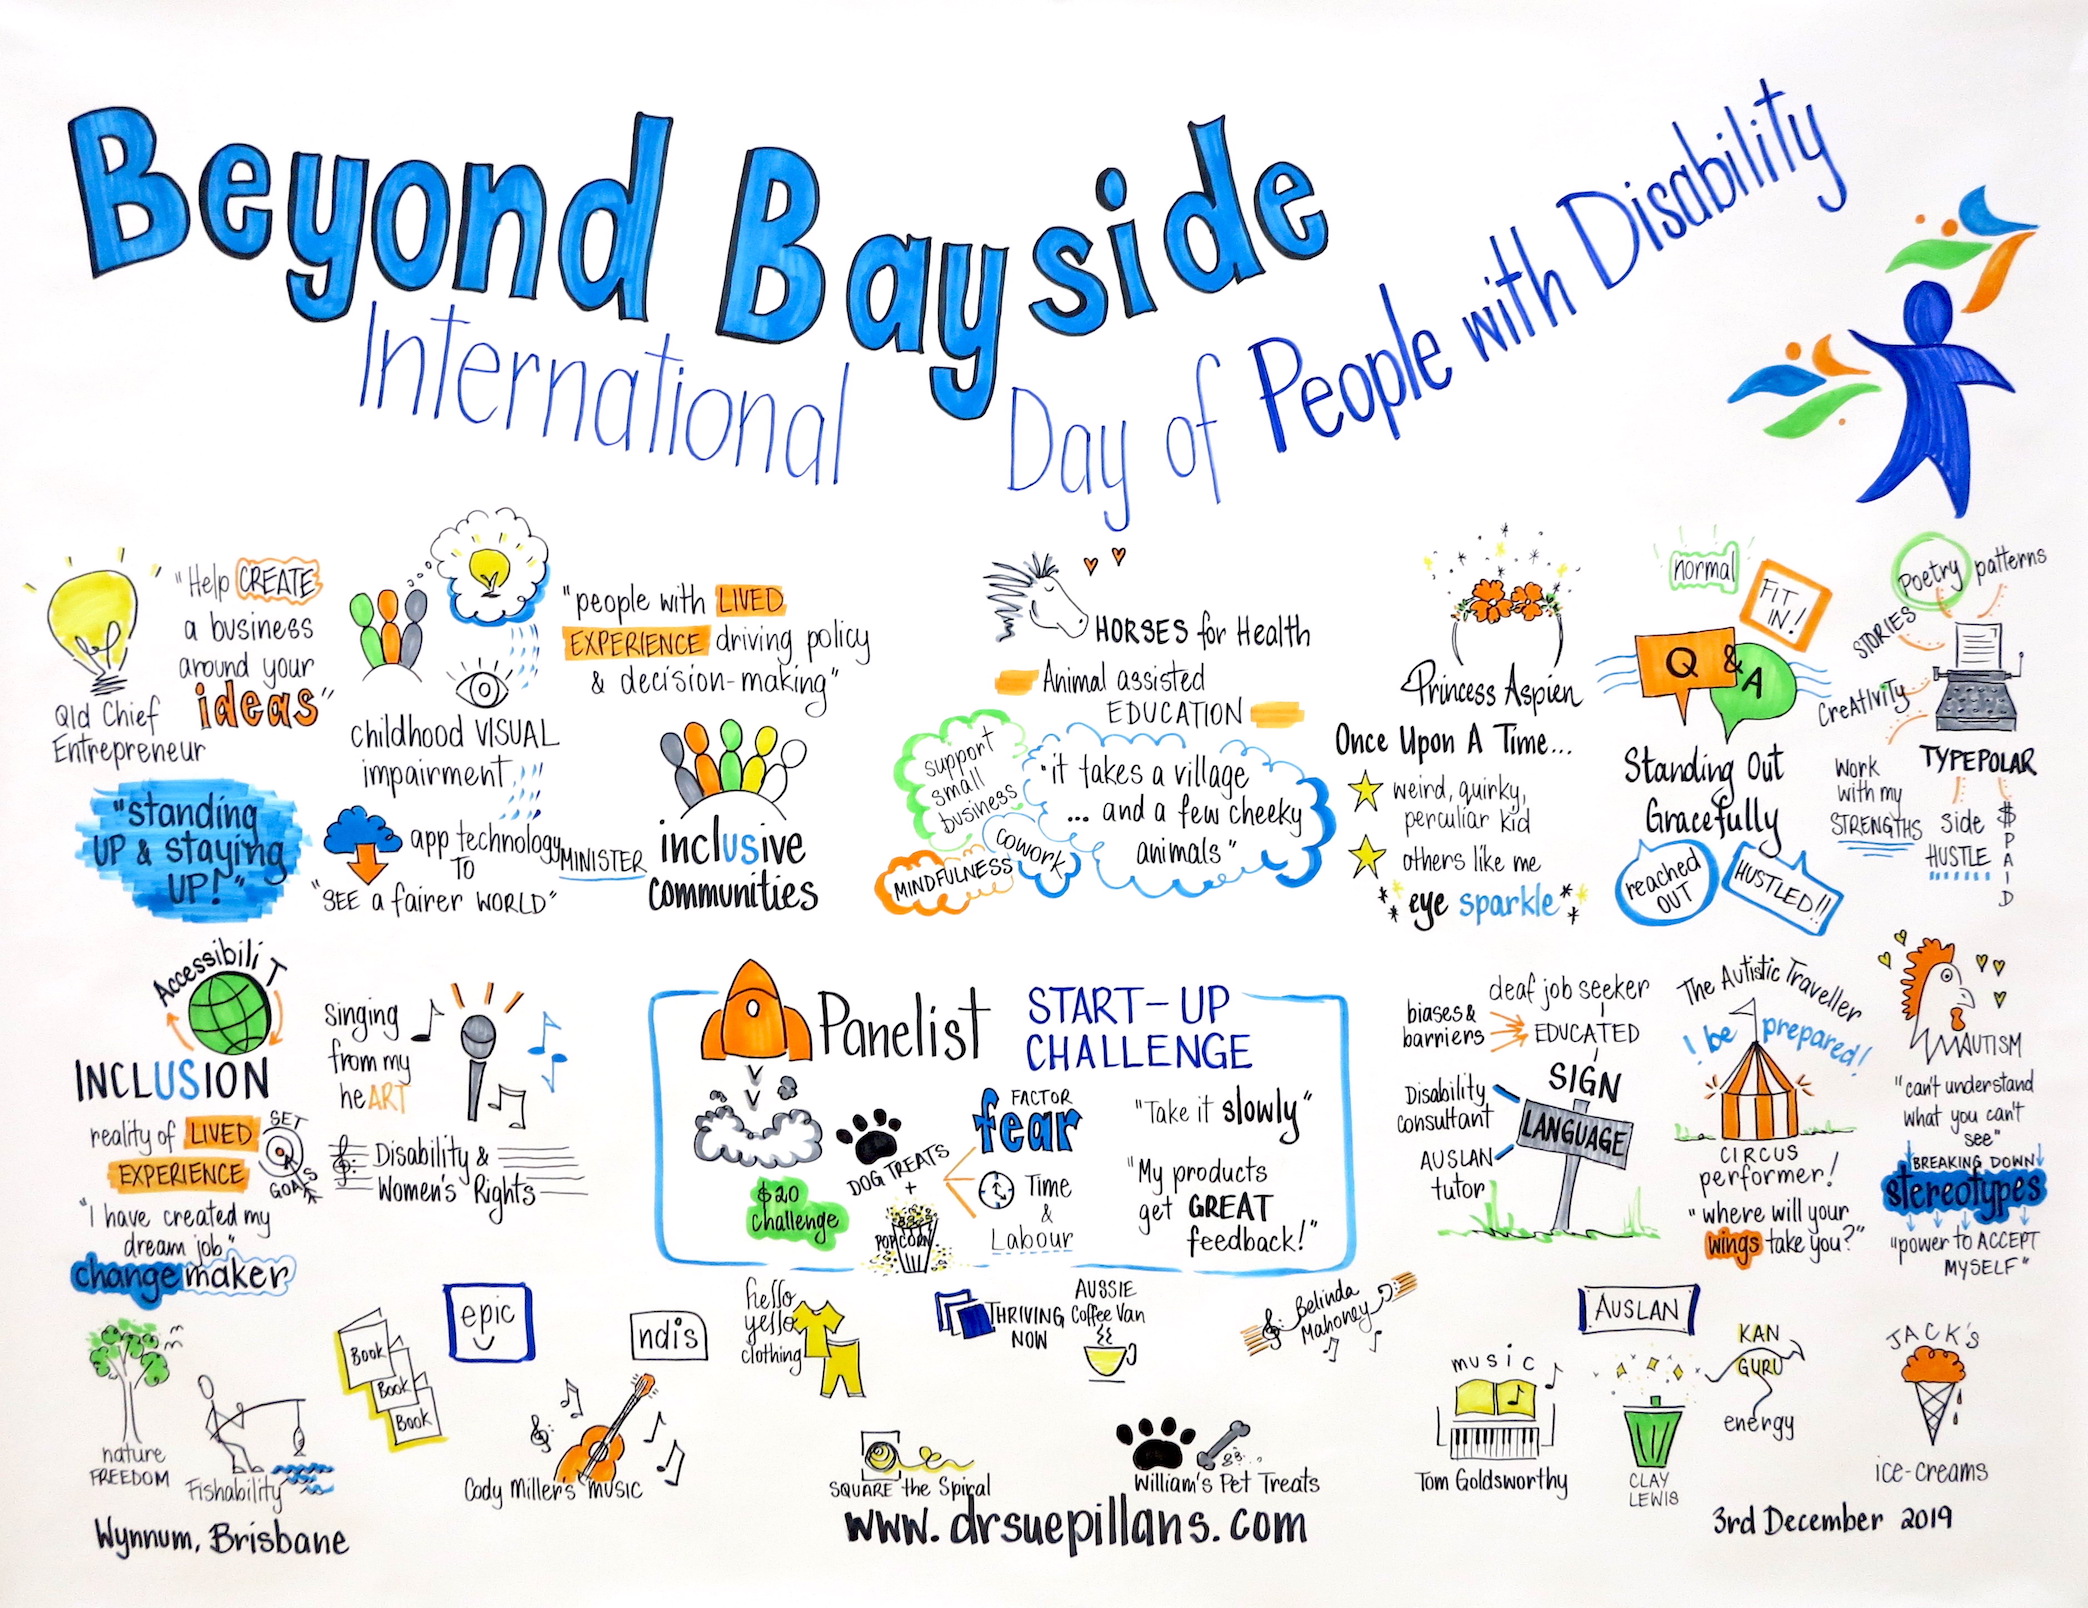 Beyond Bayside
International Day of People with Disability
Qld Chief
Entrepreneur
"Help CREATE
a business
around your
ideas"
"standing
UP & staying
UP!"
childhood VISUAL
impairment
app technology
TO
"SEE a fairer WORLD"
"people with LIVED
EXPERIENCE driving policy
& decision-making"
MINISTER
inclusive
communities
HORSES for Health
Animal assisted
EDUCATION
support
small
business
cowork
MINDFULNESS
"it takes a village
... and a few cheeky
animals"
Princess Aspien
Once Upon A Time...
weird, quirky,
perculiar kid
others like me
eye sparkle
normal
FIT
IN!
Q & A
Standing Out
Gracefully
reached
OUT
HUSTLED!!
Poetry patterns
STORIES
CREATIVITY
TYPEPOLAR
Work
with my
STRENGTHS
side
HUSTLE
$PAID
AccessibiliT
INCLUSION
reality of LIVED
EXPERIENCE
SET
GOALS
"I have created my
dream job"
changemaker
Singing
from my
heART
Disability &
Women's Rights
Panelist
START-UP
CHALLENGE
$20
challenge
DOG TREATS
+
POPCORN
FACTOR
fear
Time
&
Labour
"Take it slowly"
"My products
get GREAT
feedback!"
deaf job seeker
biases &
barriers
EDUCATED
SIGN
LANGUAGE
Disability
consultant
AUSLAN
tutor
The Autistic Traveller
! be prepared!
CIRCUS
performer!
"where will your
wings take you?"
AUTISM
"can't understand
what you can't
see"
BREAKING DOWN
stereotypes
"power to ACCEPT
MYSELF"
nature
FREEDOM
Fishability
Book
Book
Book
epic
ndis
Cody Miller's MUSIC
hello
yello
clothing
THRIVING
NOW
AUSSIE
Coffee Van
Belinda
Mahoney
SQUARE the Spiral
William's Pet Treats
music
Tom Goldsworthy
AUSLAN
CLAY
LEWIS
KAN
GURU
energy
JACK'S
ice-creams
Wynnum, Brisbane
www.drsuepillans.com
3rd December 2019